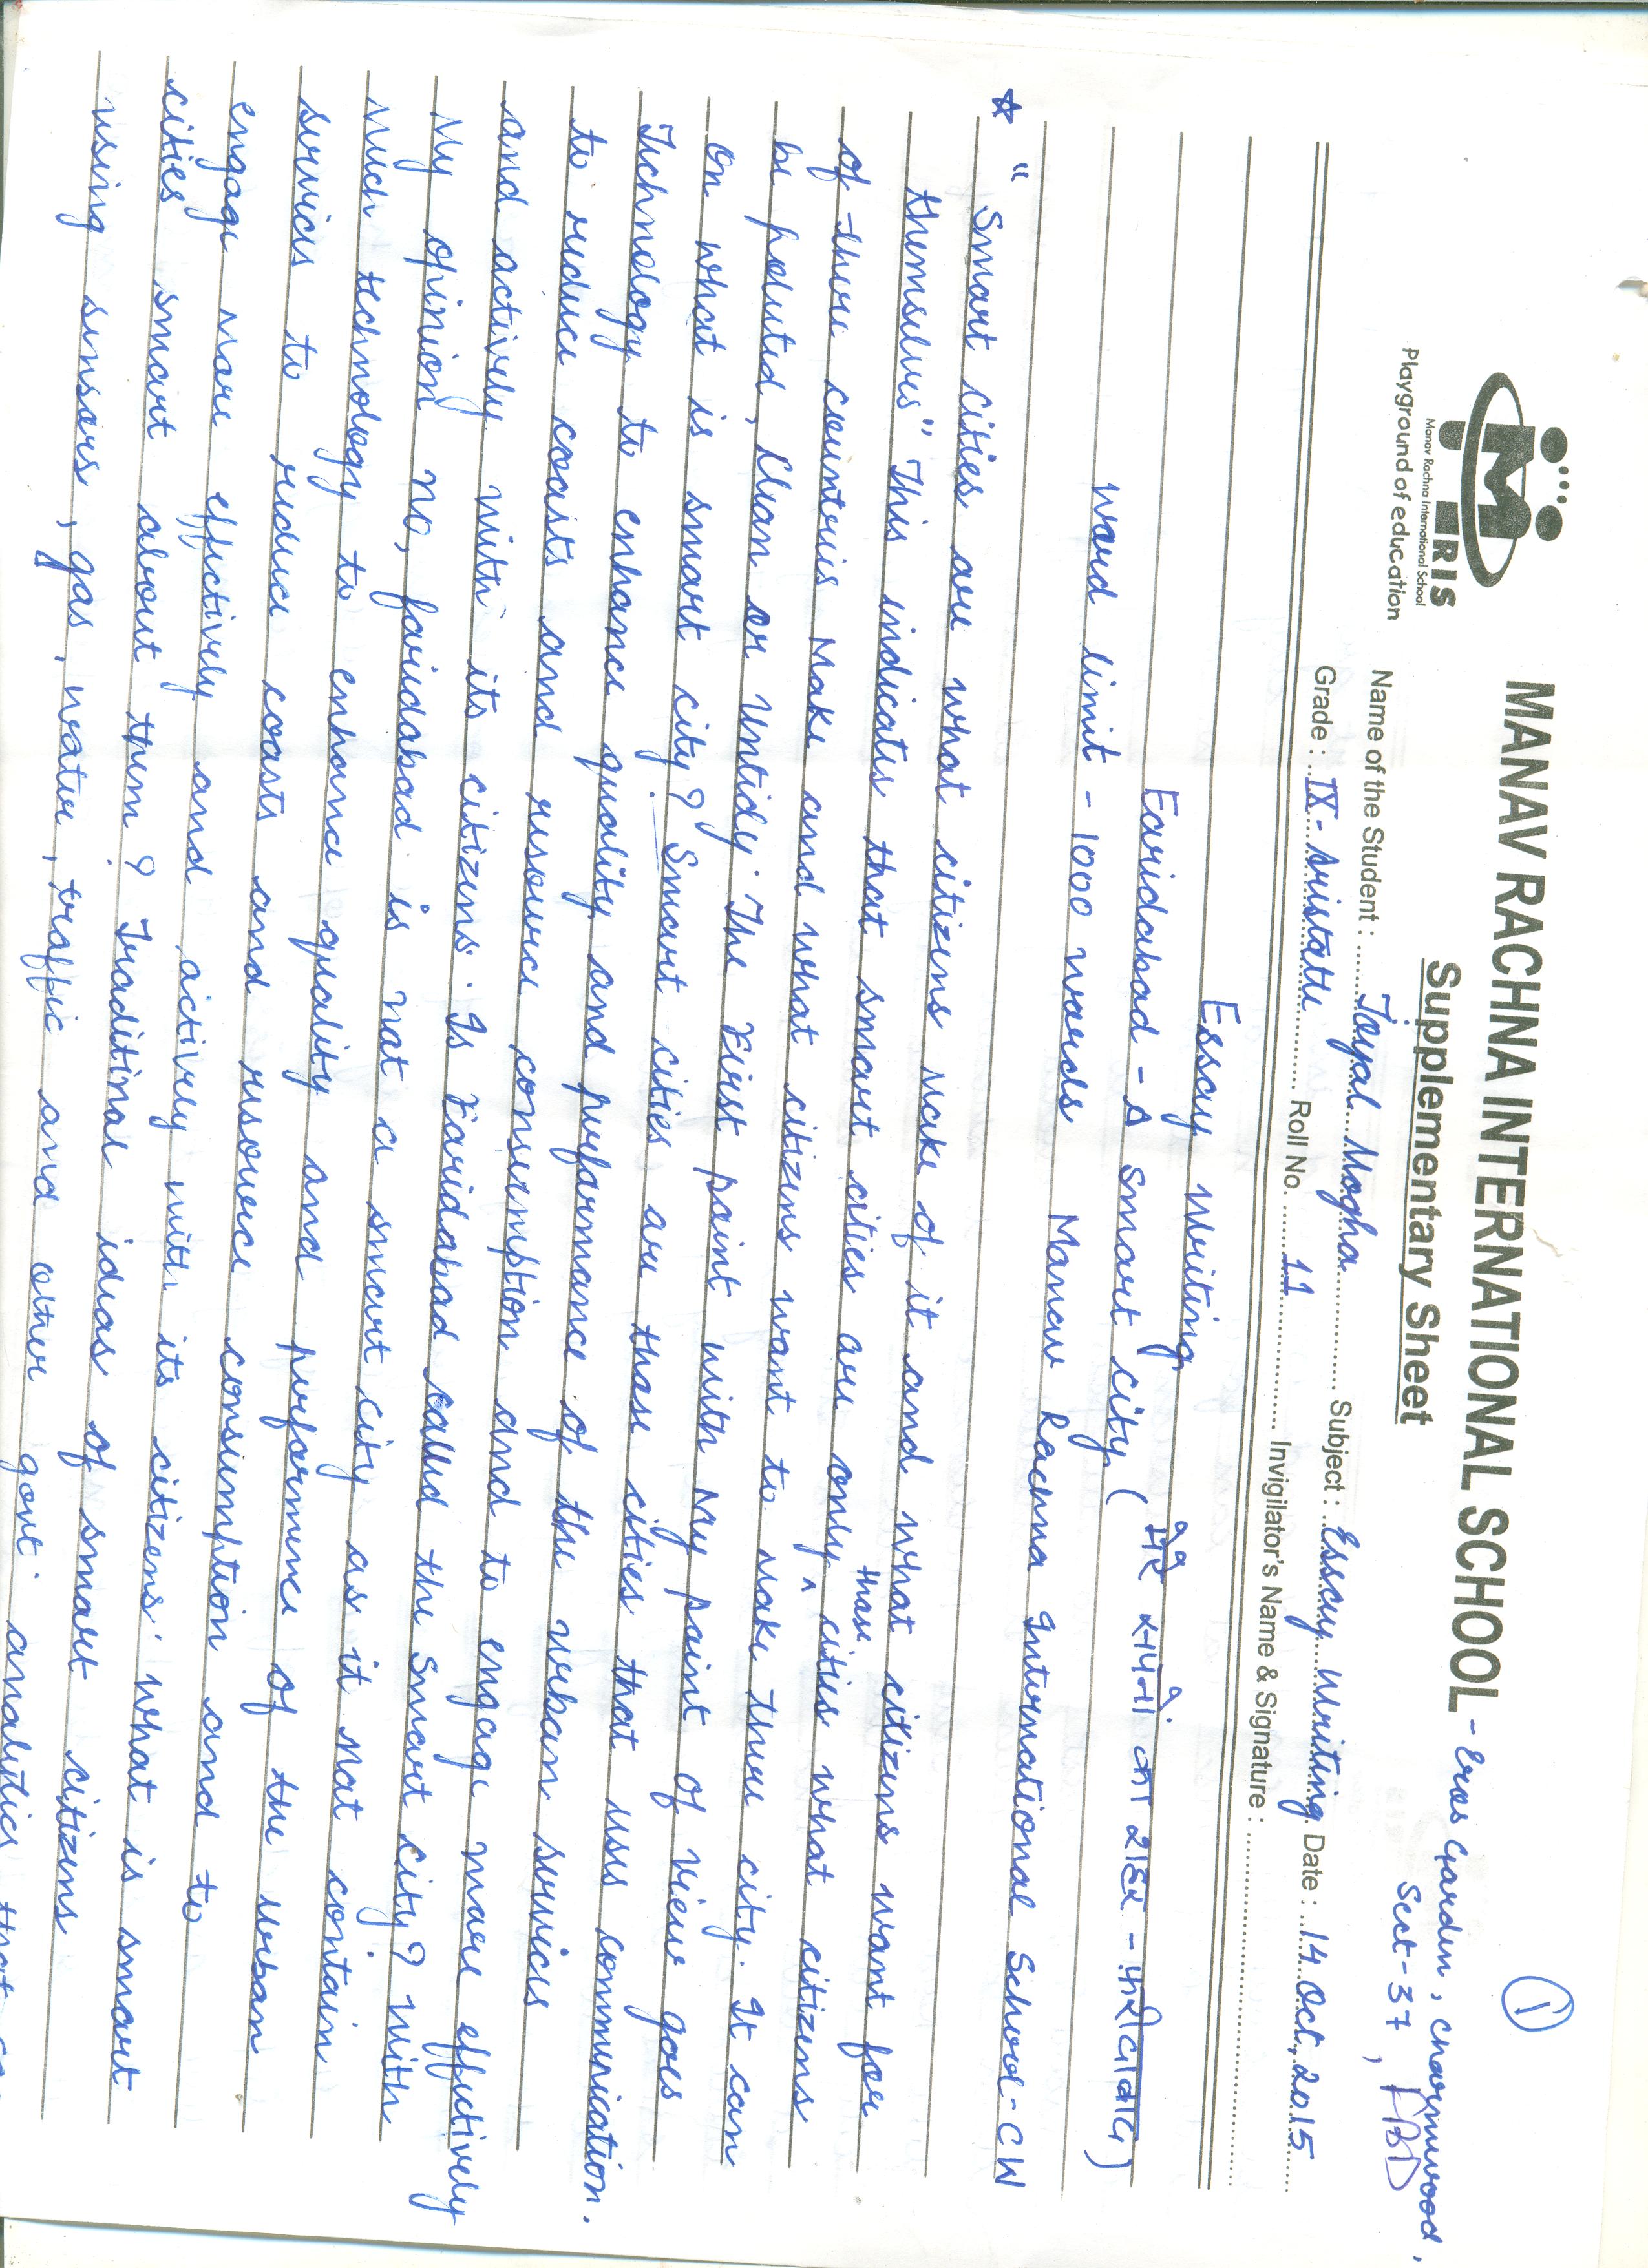 ①
MANAV RACHNA INTERNATIONAL SCHOOL - Eros Garden, Charmwood,
Sect-37, FBD
Supplementary Sheet
MRIS
Manav Rachna International School
Playground of education
Name of the Student : Tejal Mogha Subject : Essay Writing Date : 14 Oct, 2015
Grade : IX- Aristotle Roll No. 11 Invigilator's Name & Signature :
Essay Writing
Faridabad - A smart city ( मेरे सपनों का शहर - फरीदाबाद)
word limit - 1000 words Manav Rachna International School-CW
☆ " Smart cities are what citizens make of it and what
themselves" This indicates that smart cities are only those cities what citizens want for
of there countries make and what citizens want to make there city. It can
be poluted, clean or untidy. The first point with my point of view goes
on what is smart city? Smart cities are those cities that uses communication.
Technology to enhance quality and performance of the urban services
to reduce coasts and resource consumption and to engage more effectively
and actively with its citizens. Is Faridabad called the smart city? With
My opinion no, faridabad is not a smart city as it not contain
much technology to enhance quality and performnce of the urban
services to reduce coasts and resource consumption and to
engage more effectively and actively with its citizens. What is smart
cities smart about them? Traditinal ideas of smart citizens
using sensors, gas, water, traffic and other govt. analytics that